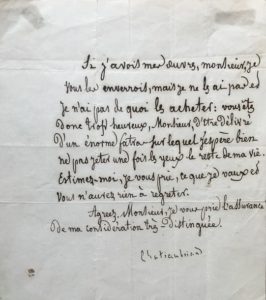 Si j'avois mes œuvres, monsieur, je
vous les enverrois, mais je ne les ai pas et
je n'ai pas de quoi les acheter: vous êtes
donc trop heureux, Monsieur, d'être délivré
d'un énorme fatras sur lequel j'espère bien
ne pas jeter une fois les yeux le reste de ma vie.
Estimez-moi, je vous prie, ce que je vaux et
vous n'aurez rien à regretter.
Agréez, Monsieur, je vous prie l'assurance
de ma considération très-distinguée.
Chateaubriand